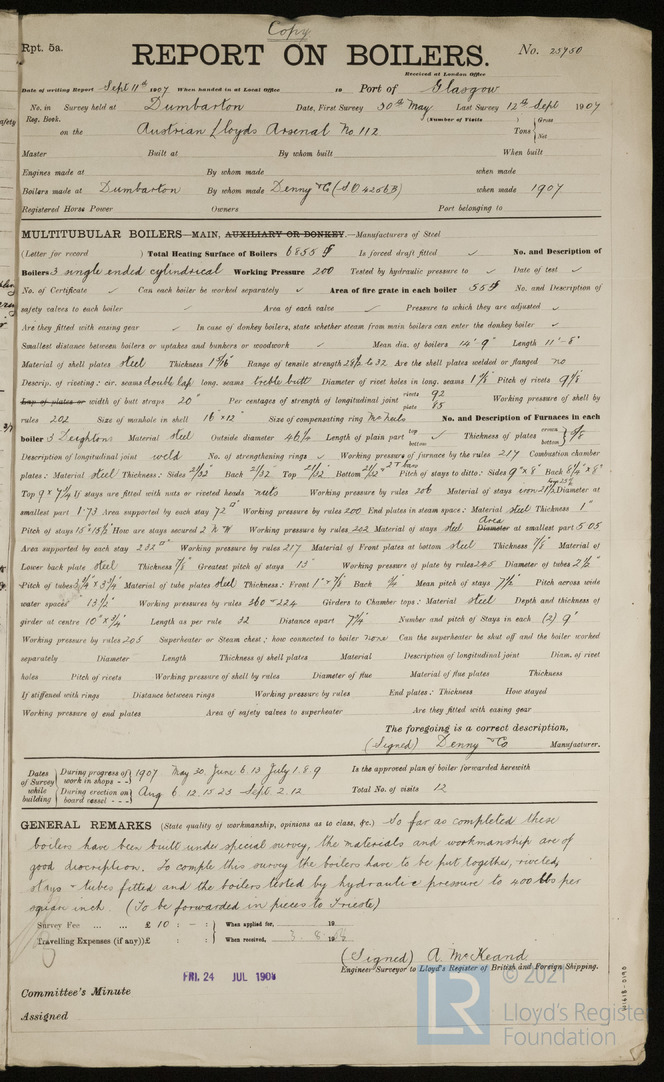 Copy
Rpt. 5a.
REPORT ON BOILERS.
No. 25750
Received at London Office
Date of writing Report Sept 11th 1907 When handed in at Local Office 19 Port of Glasgow
No. in Survey held at Dumbarton Date, First Survey 30th May Last Survey 12th Sept 1907
Reg. Book. (Number of Visits
on the Austrian Lloyds Arsenal No 112 Tons { Gross Net
Master Built at By whom built When built
Engines made at By whom made when made
Boilers made at Dumbarton By whom made Denny & Co (S.O 4256B) when made 1907
Registered Horse Power Owners Port belonging to
MULTITUBULAR BOILERS—MAIN, AUXILIARY OR DONKEY.—Manufacturers of Steel
(Letter for record ) Total Heating Surface of Boilers 6855 Is forced draft fitted ✓ No. and Description of
Boilers 3 single ended cylindrical Working Pressure 200 Tested by hydraulic pressure to ✓ Date of test ✓
No. of Certificate ✓ Can each boiler be worked separately ✓ Area of fire grate in each boiler 55 No. and Description of
safety valves to each boiler ✓ Area of each valve ✓ Pressure to which they are adjusted ✓
Are they fitted with easing gear ✓ In case of donkey boilers, state whether steam from main boilers can enter the donkey boiler ✓
Smallest distance between boilers or uptakes and bunkers or woodwork ✓ Mean dia. of boilers 14' 9" Length 11' - 8"
Material of shell plates steel Thickness 1 5/16" Range of tensile strength 28½ to 32 Are the shell plates welded or flanged no
Descrip. of riveting: cir. seams double lap long. seams treble butt Diameter of rivet holes in long. seams 1 3/8 Pitch of rivets 9 5/8
Lap of plates or width of butt straps 20" Per centages of strength of longitudinal joint rivets 92 plate 85 Working pressure of shell by
rules 202 Size of manhole in shell 16" × 12" Size of compensating ring McNeils No. and Description of Furnaces in each
boiler 3 Deightons Material steel Outside diameter 46¼ Length of plain part top bottom ✓ Thickness of plates crown bottom } 5/8
Description of longitudinal joint weld No. of strengthening rings ✓ Working pressure of furnace by the rules 217 Combustion chamber
plates: Material steel Thickness: Sides 21/32" Back 21/32 Top 21/32" Bottom Pitch of stays to ditto: Sides 9" × 8" Back 8¼" × 8"
Top 9 × 7¼ If stays are fitted with nuts or riveted heads nuts Working pressure by rules 206 Material of stays iron Diameter at
smallest part 1.73 Area supported by each stay 72 Working pressure by rules 200 End plates in steam space: Material steel Thickness 1"
Pitch of stays 15" × 15½" How are stays secured 2 N W Working pressure by rules 202 Material of stays steel Diameter Area at smallest part 5.05
Area supported by each stay 232 Working pressure by rules 217 Material of Front plates at bottom steel Thickness 7/8" Material of
Lower back plate steel Thickness 7/8" Greatest pitch of stays 13" Working pressure of plate by rules 245 Diameter of tubes 2½"
Pitch of tubes 3¾" × 3¾" Material of tube plates steel Thickness: Front 1" × 7/8 Back ¾" Mean pitch of stays 7½" Pitch across wide
water spaces 13½" Working pressures by rules 360 - 224 Girders to Chamber tops: Material steel Depth and thickness of
girder at centre 10" × ¾" Length as per rule 32 Distance apart 7¾" Number and pitch of Stays in each (2) 9"
Working pressure by rules 205 Superheater or Steam chest; how connected to boiler none Can the superheater be shut off and the boiler worked
separately Diameter Length Thickness of shell plates Material Description of longitudinal joint Diam. of rivet
holes Pitch of rivets Working pressure of shell by rules Diameter of flue Material of flue plates Thickness
If stiffened with rings Distance between rings Working pressure by rules End plates: Thickness How stayed
Working pressure of end plates Area of safety valves to superheater Are they fitted with easing gear
The foregoing is a correct description,
(Signed) Denny & Co Manufacturer.
Dates of Survey while building { During progress of work in shops - - } 1907 May 30. June 6. 13 July 1. 8. 9 Is the approved plan of boiler forwarded herewith
{ During erection on board vessel - - - } Aug 6. 12. 15 23 Sept 2. 12 Total No. of visits 12
GENERAL REMARKS (State quality of workmanship, opinions as to class, &c.) So far as completed these
boilers have been built under special survey, the materials and workmanship are of
good description. To comple this survey the boilers have to be put together, riveted,
stays & tubes fitted and the boilers tested by hydraulic pressure to 400 lbs per
square inch. (To be forwarded in pieces to Trieste)
Survey Fee ... ... £ 10 : - : } When applied for, 19
Travelling Expenses (if any) £ : : } When received, 3. 8. 19
(Signed) A. McKeand
Engineer Surveyor to Lloyd's Register of British and Foreign Shipping.
FRI. 24 JUL 1908
Committee's Minute
Assigned
LR © 2021
Lloyd's Register
Foundation